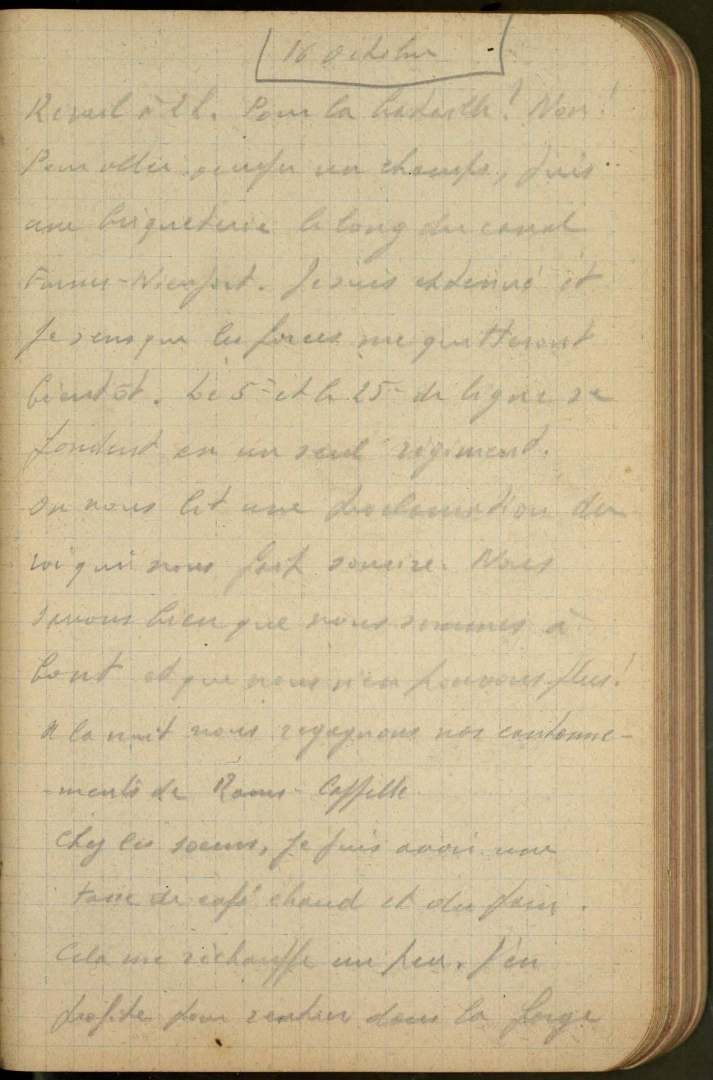 16 octobre
Réveil à 2 h. Pour la bataille? Non!
Pour aller occuper un champs, puis
une briqueterie le long du canal
Furnes-Nieuport. Je suis exténué et
je sens que les forces me quitteront
bientôt. Le 5e et le 25e de ligne se
fondent en un seul régiment.
On nous lit une proclamation du
roi qui nous fait sourire. Nous
savons bien que nous sommes à
bout et que nous n'en pouvons plus!
A la nuit nous regagnons nos cantonne-
-ments de Rams-Cappelle
Chez les soeurs, je puis avoir une
tasse de café chaud et du pain.
Cela me réchauffe un peu. J'en
profite pour rentrer dans la forge